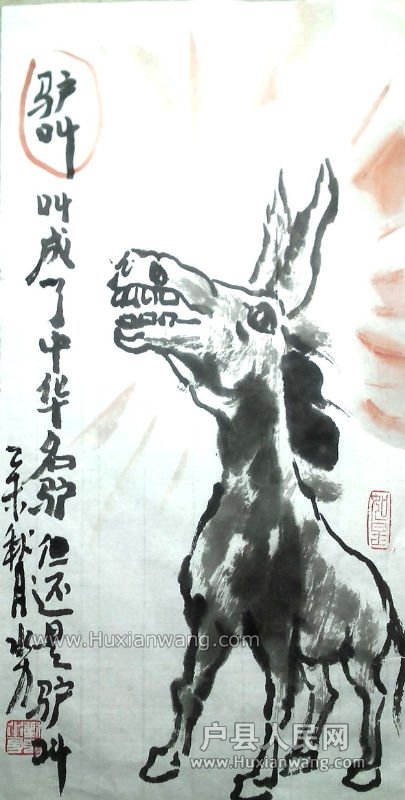 驴叫
叫成了中华名驴仍还是驴叫
乙未秋月
www.Huxianwang.com
户县人民网
www.Huxianwang.com